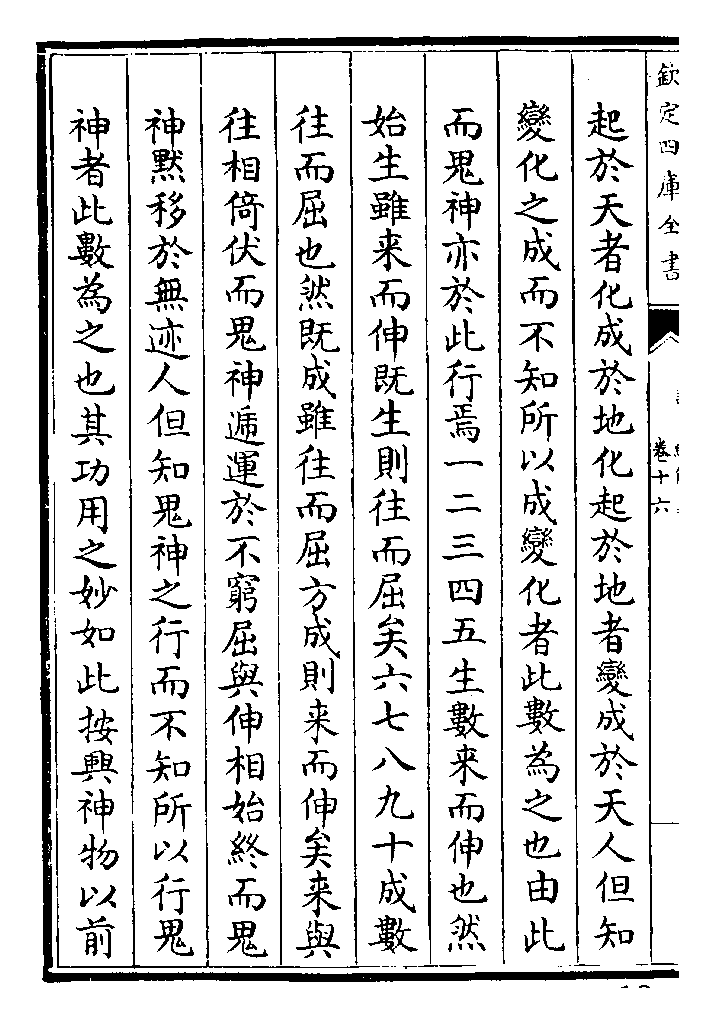 欽定四庫全書
卷十六
起於天者化成於地化起於地者變成於天人但知
變化之成而不知所以成變化者此數為之也由此
而鬼神亦於此行焉一二三四五生數来而伸也然
始生雖来而伸既生則往而屈矣六七八九十成數
往而屈也然既成雖往而屈方成則来而伸矣来與
往相倚伏而鬼神遞運於不窮屈與伸相始終而鬼
神黙移於無迹人但知鬼神之行而不知所以行鬼
神者此數為之也其功用之妙如此按興神物以前